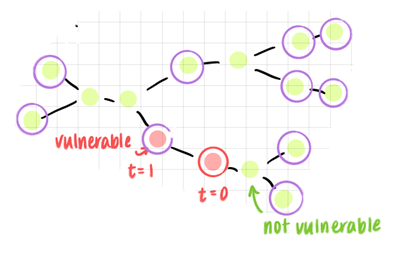 vulnerable
t=1
t=0
not vulnerable